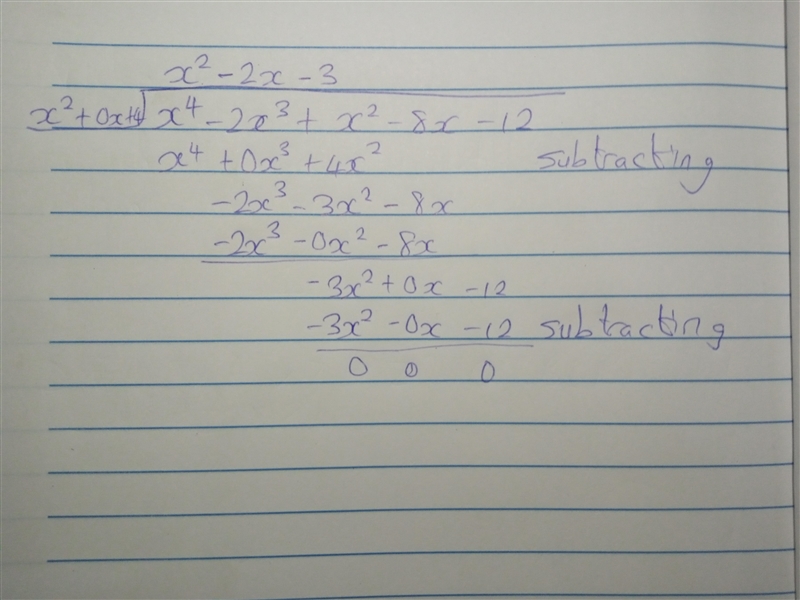 x² - 2x - 3
x² + 0x + 4 x⁴ - 2x³ + x² - 8x - 12
x⁴ + 0x³ + 4x² subtracting
-2x³ - 3x² - 8x
-2x³ - 0x² - 8x
-3x² + 0x - 12
-3x² - 0x - 12 subtracting
0 0 0